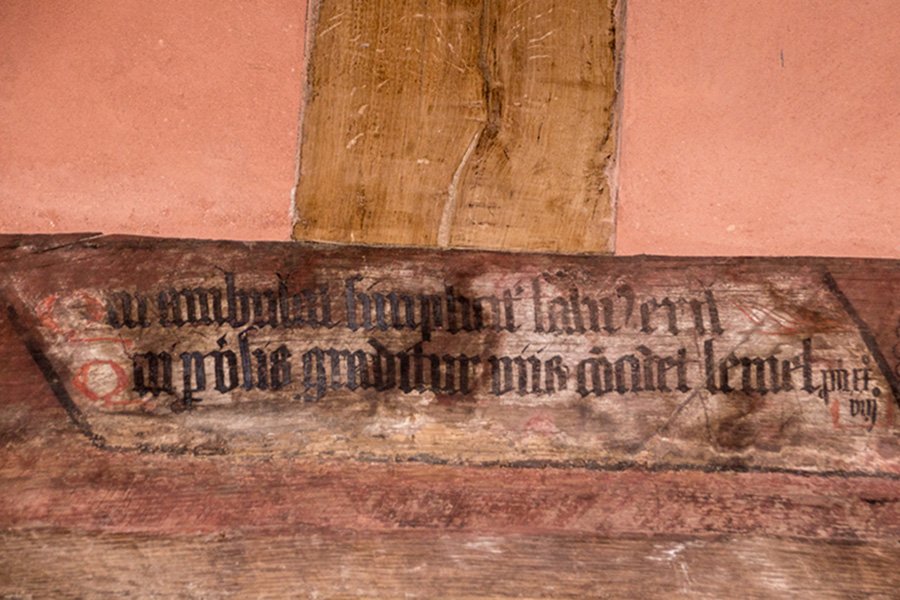 Qui ambulat simplicit' salu9 erit
Qui pv'sis graditur viis cōcidet semel
viij